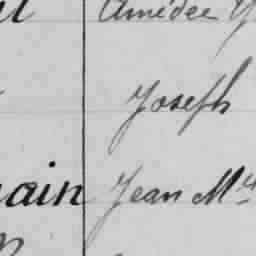 Amédée
Joseph
ain Jean M